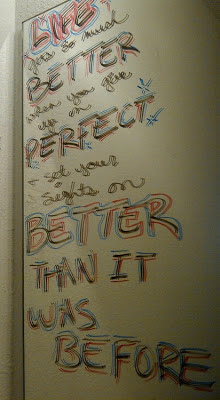 LIFE
gets so much
BETTER
when you give
up on
PERFECT
& set your
sights on
BETTER
THAN IT
WAS
BEFORE